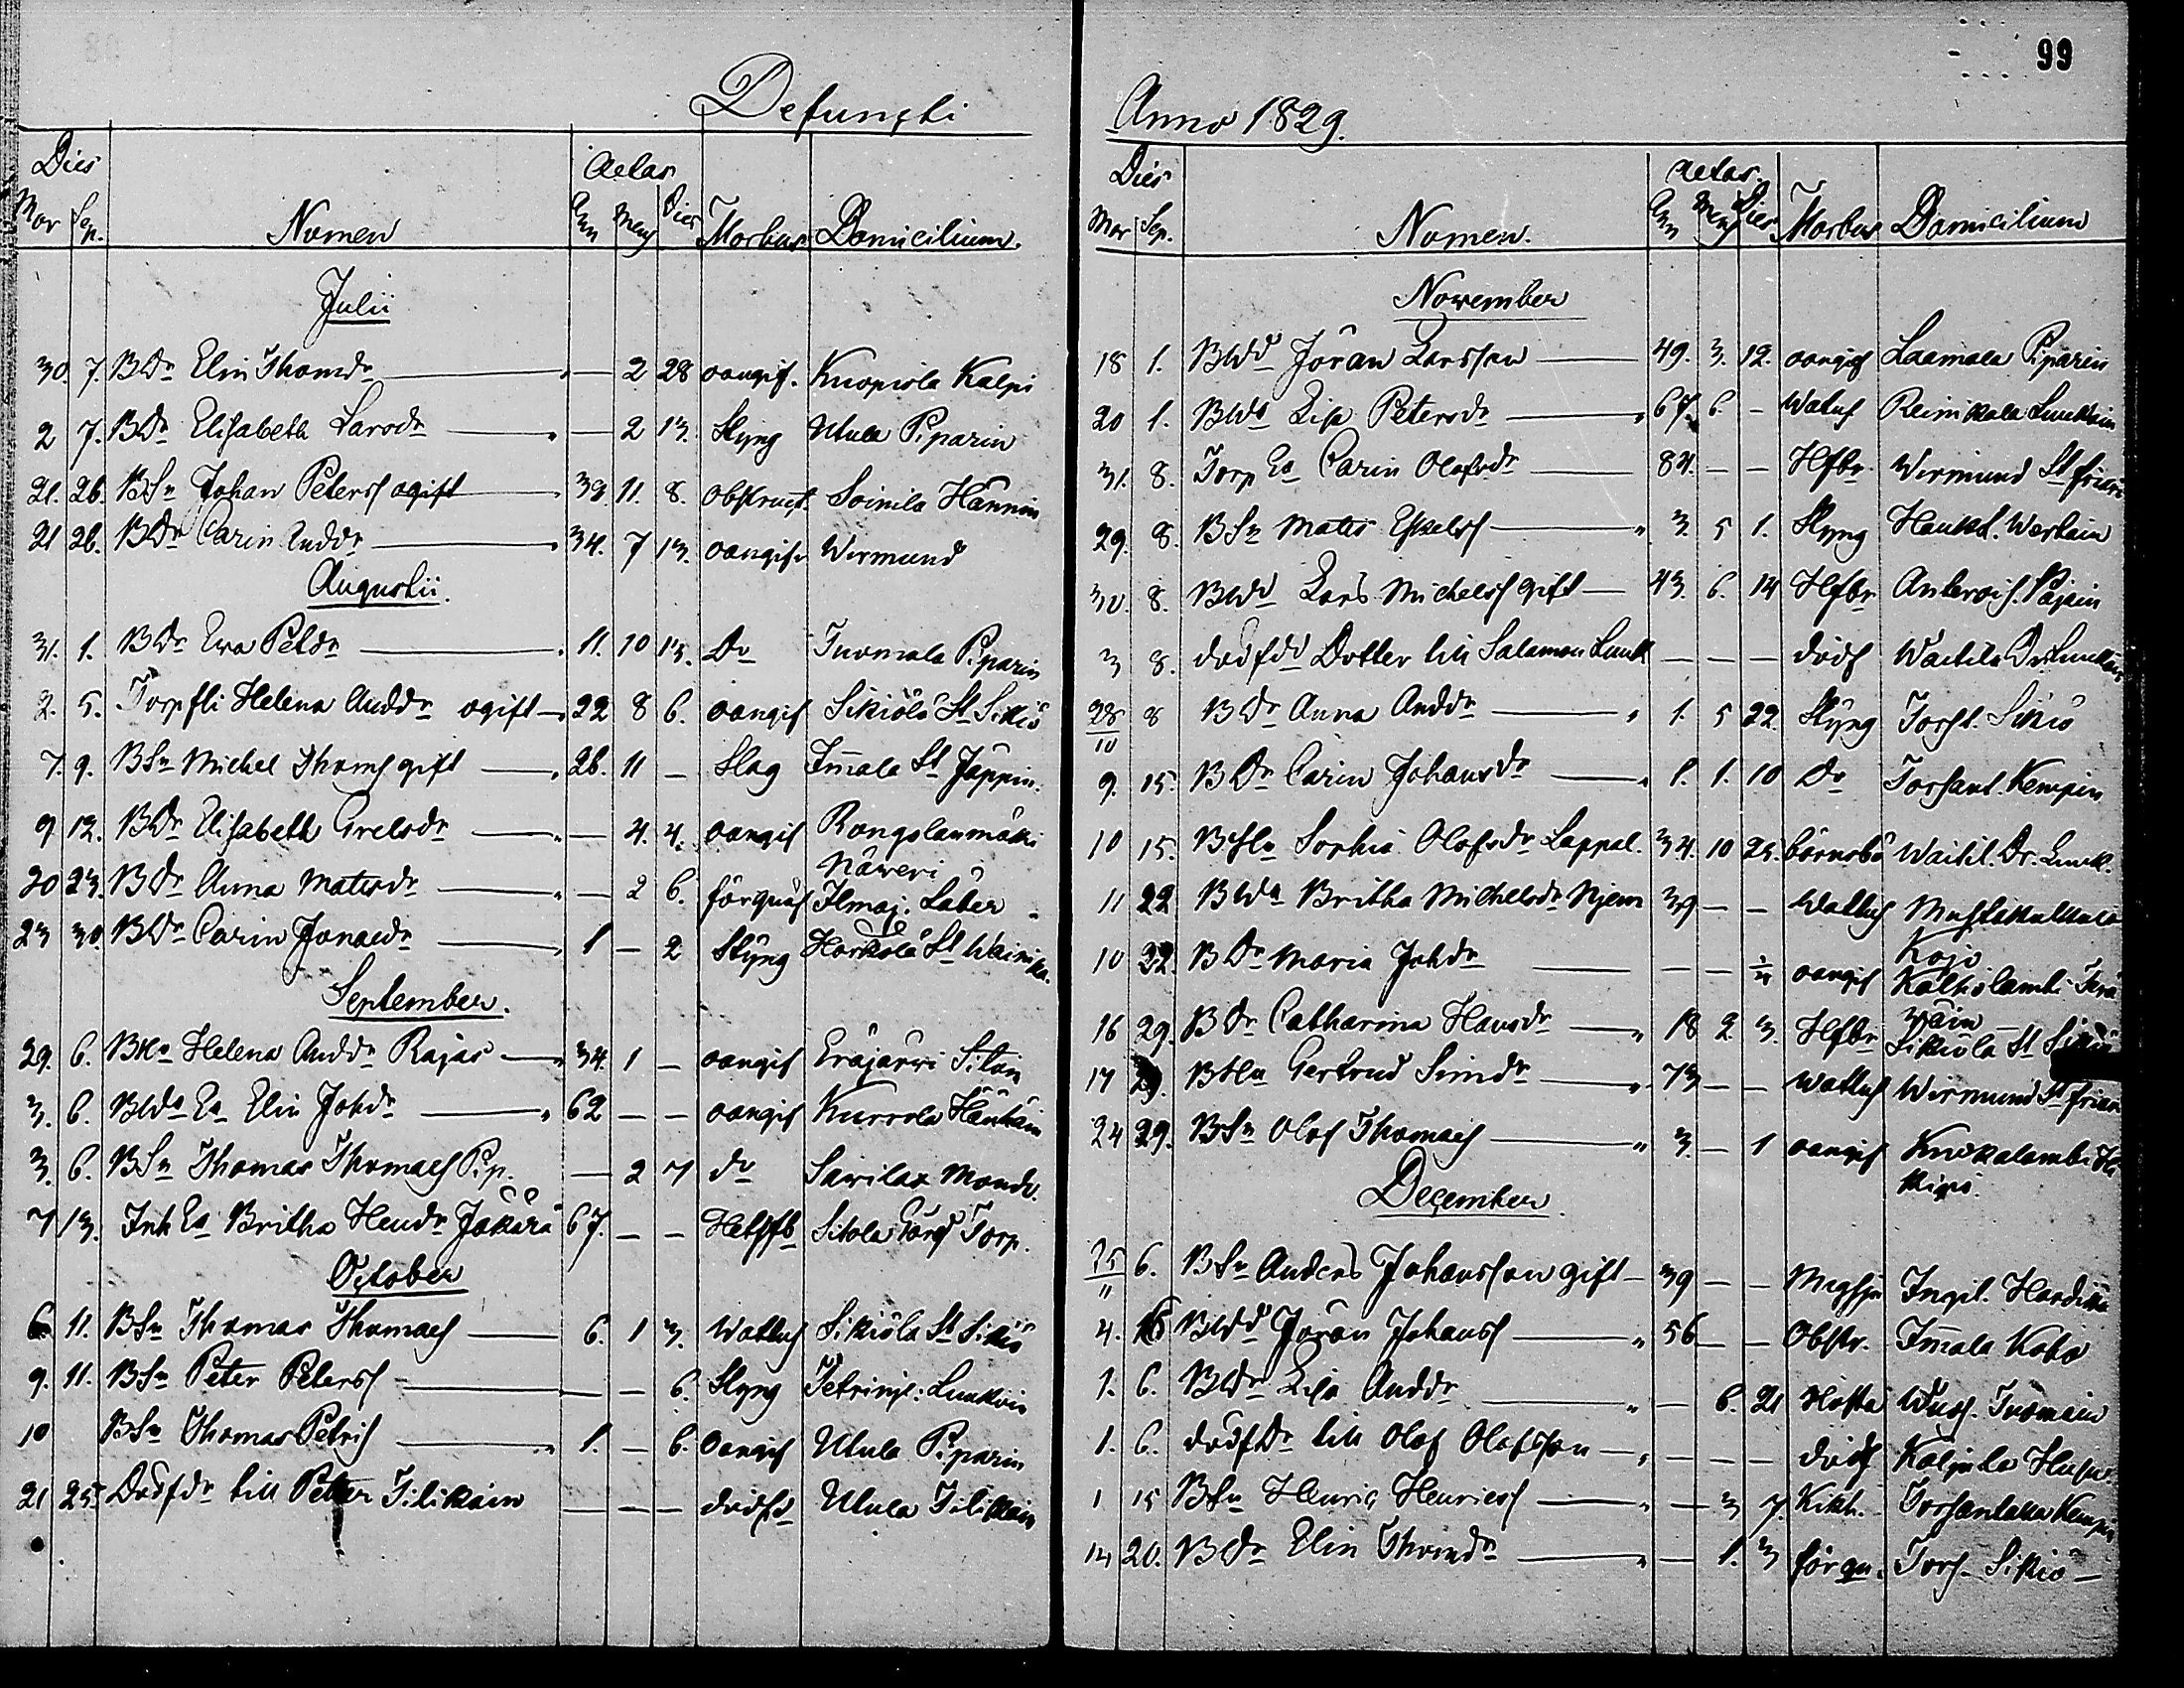 99
Defuncti
Dies Aetas
Mor Sep. Nomen Ann Mens Dies Morbus Domicilium.
Julii
30. 7. BDr Elin Thomdr — — 2 28 oangif. Kuopiola Kalpi
2 7. BDr Elisabeth Larsdr — — 2 13. Slyng Utula Piparin
21. 26. BSn Johan Peterss ogift 39. 11. 8. obstruct. Soinila Hännin
21 26. BDr Carin Anddr — 34. 7 13. oangifv Wirmund
Augustii.
31. 1. BDr Ewa Petdr — 11. 10 13. Do Tuomala Piparin
2. 5. Torpfli Helena Anddr ogift — 22 8 6. oangif Sikiölä St Sikiö
7. 9. BSn Michel Thoms gift — 26. 11 — Slag Imala St Jäppin.
9 12. BDr Elisabeth Grelsdr — — 4. 4. oangif Rongolanmäki Näveri
20 23. BDr Anna Matsdr — — 2 6. förquäf Ilmaj. Laber
23 30. BDr Carin Jonaedr — 1 — 2 Slyng Harkola St Wainika.
September.
29. 6. BHu Helena Anddr Rajas — 34. 1 — oangif Eräjärvi Sitan
3. 6. BWds Ea Elin Johdr — 62 — — oangif Kurrola Hänhäin
3. 6. BSn Thomas Thomaes Pip. — 2 7 do Savilax Mondo.
7 13. Inh Ea Britha Hendr Jakärä 67. — — Hetsfb Sitola Gård Torp.
October
6 11. BSn Thomas Thomaes — 6. 1 3. Wattus Sikiöla St Sikiö
9. 11. BSn Peter Peterss — — — 6. Slyng Tetrinje: Luukoin
10 BSn Thomas Petris — 1. — 6. Oangif Utula Piparin
21 25. Dödfdr till Petter Tilikain — — — dödfd Utula Tilikain
Anno 1829.
Dies Aetas.
Mor Sep. Nomen. Ann Mens Dies Morbus Domicilium
November
18 1. BWdd Jöran Larsson — 49. 3. 12. oangif Laamala Piparin
20 1. BWds Lisa Petersdr — 67. 6. — Watus Reinikala Luukain
31. 8. Torp Ea Carin Olofsdr — 84. — — Hfbr. Wirmund St
29. 8. BSn Mats Eskelss — 3. 5 1. Slyng Haukd. Wartain
30. 8. BWdd Lars Michelss gift — 43. 6. 14 Hfbr Anterois. Pajain
3 8. dödfdd Dotter till Salamon Luuk — — — dödf Waitila Dr Luukain
28/10 8 BDr Anna Anddr — 1. 5 22. Slyng Torst. Sikiö
9. 15. BDr Carin Johansdr — 1. 1. 10 Do Torsant. Kempin
10 15. BHu Sophia Olofsdr Lappal. 34. 10 25. barnsbö Waitil. Dr. Luuk.
11 22 BWa Britha Michelsdr Njem 39 — — Wattus Mustakulkula Kojo
10 22. BDr Maria Johdr — — — 1/4 oangif Kalholambi
16 29. BDr Catharina Hansdr — 18 2. 3. Hfbr Sikiöla St Sikiö
17 29. BHu Gertrud Simdr — 73 — — Wattus Wirmund St
24 29. BSn Olof Thomaes — 3. — 1 oangif Kuokalambi
December.
25/11 6. BSn Anders Johansson gift — 39 — — Ingil. Hardika
4. 16 BWdd Jöran Johanss — 56 — — Obstr. Imala Koho
1. 6. BWdr Lisa Anddr — — 6. 21 Hosta Wuos. Tuomain
1. 6. dödfdr till Olof Olofsson — — — — dödf Kaljula Husu
1 15 BSn Henric Henricss — — 3 7. Kikh. Torsantaka Kempin
14 20. BDr Elin Thomdr — — 1. 3 förqu. Tors. Sikiö —